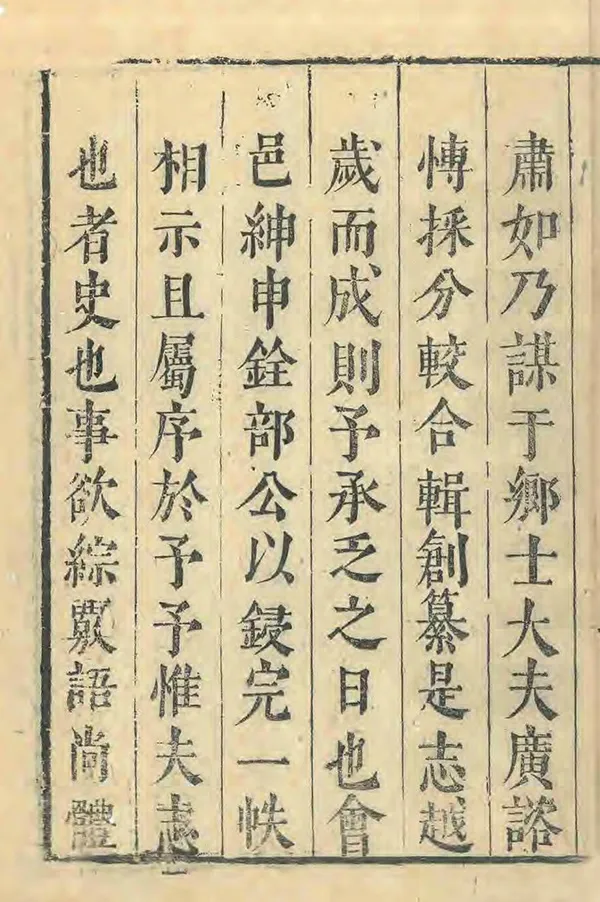 肅如乃謀于鄉士大夫廣諮
慱採分較合輯創纂是志越
歲而成則予承乏之日也會
邑紳申銓部公以鋟完一帙
相示且屬序於予予惟夫志
也者史也事欲綜覈語尚體